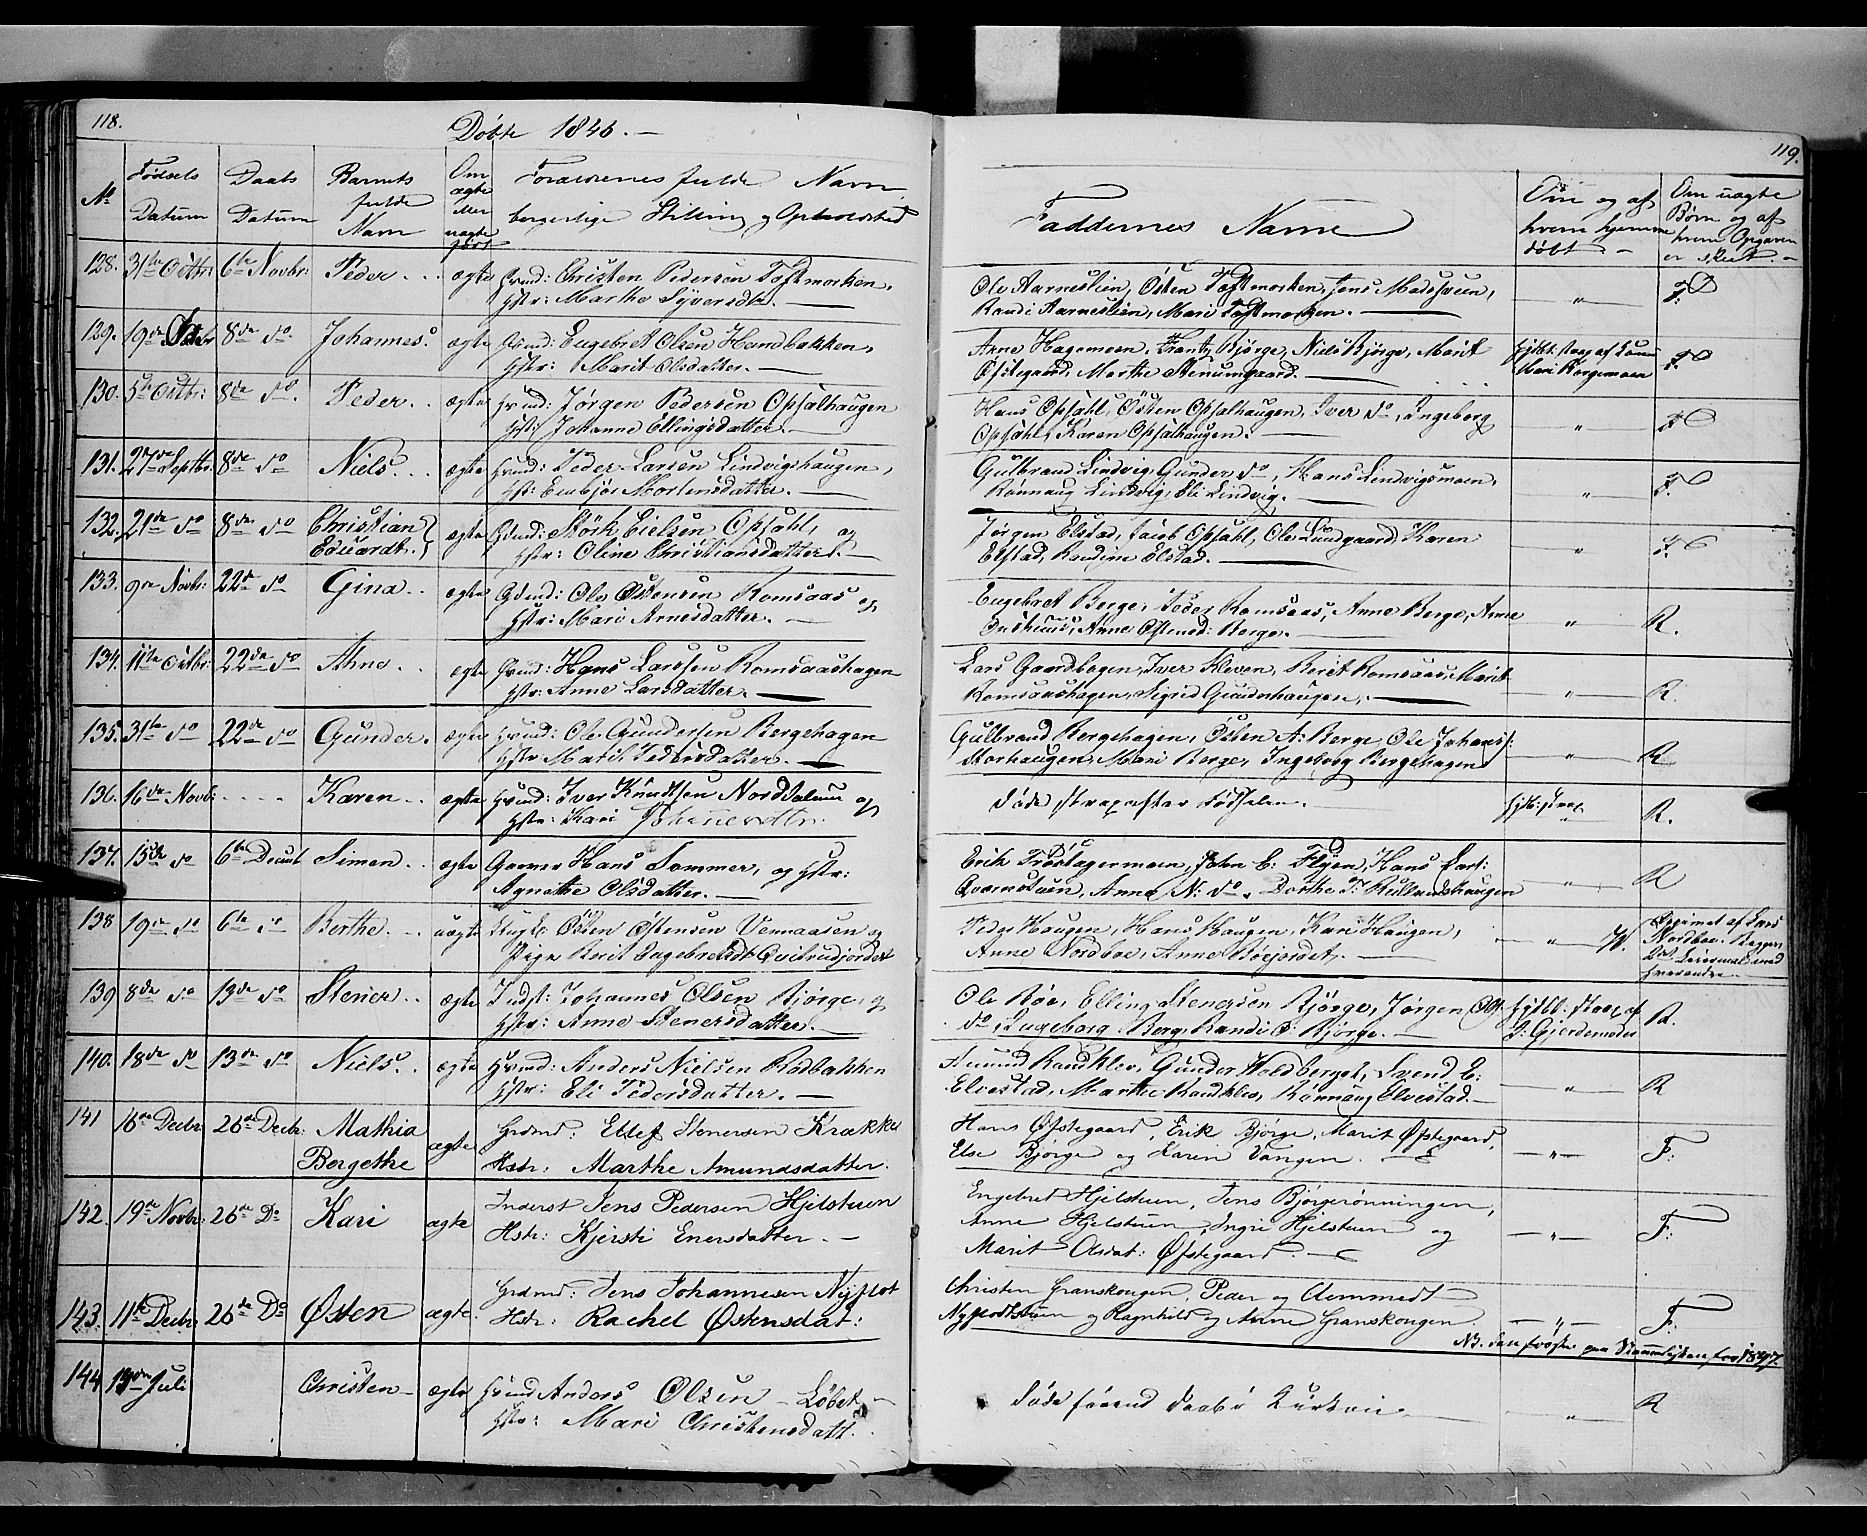 118.
Døbte 1846. —
No
Fødsels Datum
Daabs Datum
Barnets fulde Navn
Om ægte eller uægte født
Forældrenes fulde Navn, borgerlige Stilling og Opholdsted
128. 31te Octbr: 6te Novbr: Peder ægte Hmd: Christen Pedersen Toftmorken,
Hstr: Marthe Syversdtr. —
129. 19de 8de do. Johannes. ægte Engebret Olsen
Hstr: Marit Olsdatter. —
130. 5te Octbr: 8de do. Peder ægte Hmd: Jørgen Pedersen Opsalhaugen
Hstr: Johanne Ellingsdatter. —
131. 27de Septbr: 8de do Niels. ægte Hmd: Peder Larsen Lindvigshaugen,
Hstr: Mortensdatter. —
132. 21de do 8de do Christian Eduardt. ægte Gdmd: Størk Opsahl, og
Hstr: Oline Christiansdatter. —
133. 9de Novbr: 22de do Gina ægte Gdmd: Ole Østensen Romsaas og
Hstr: Mari Arnesdatter. —
134. 11te Octbr: 22de do Ahne ægte Hmd: Hans Larssen Romsaashagen
Hstr: Anne Larsdatter. —
135. 31te do 22de do Gunder. ægte Hmd: Ole Gundersen Bergehagen
Hstr: Marit Pedersdatter. —
136. 16de Novb: Karen ægte Hmd: Iver Knudtsen Norddalum og
Hstr: Kari
137. 15de do 6te Decmb Simen ægte Hans Sommer, og Hstr:
Agnethe Olsdatter. —
138 19de do 6te do Berthe uægte Ungk. Østen Østensen Vennaasen og
Pige Berit Engebretsdt
139 8de do 13de do Stener ægte Indst: Johannes Olsen Bjørge, og
Hstr: Anne Stenersdatter. —
140. 18de do 13de do Niels. ægte Hmd: Anders Nielsen Rødbakken
Hstr: Eli Pedersdatter. —
141 16de Decbr 26de Decbr: Mathia Bergethe ægte Grdmd: Ellef Stenersen Krække
Hstr: Marthe Amundsdatter.
142. 19de Novbr: 26de Do Kari ægte Inderst Jens Pedersen Hjelstuen
Hstr: Kjersti Enersdatter. —
143. 11te Decbr 26de Do Østen ægte. Grdmd: Jens Johannesen Nyflot
Hstr: Rachel Østensdat:
144 Juli Christen — ægte Hmd Anders Olsen — Løbet —
Hstr: Mari Christensdatt.
119.
Faddernes Navne
Om og af hvem hjemmedøbt —
Om uægte Børn og af hvem Opgaven er skeet. —
Ole Aarneslien, Østen Toftmorken, Jens Madssveen, — „ — F.
Randi Aarneslien, Mari Toftmorken. —
Arne Hagemoen, Frantz Bjørge, Niels Bjørge, Marit F.
Øfstegaard, Marthe Stenumgaard. —
Hans Opsahl, Østen Opsalhaugen, Iver do, Ingeborg — „ — F
Opsahl, Karen Opsalhaugen. —
Gulbrand Lindvig, Gunder do, Hans Lindvigsmoen, — „ — F.
Rønnaug Lindvig, Eli Lindvig. —
Jørgen Elstad, Jacob Opsahl, Ole Lundgaard, Karen — „ — F.
Elstad, Randine Elstad. —
Engebret Berge, Peder Romsaas, Anne Berge, Anne — „ — R.
Anne Østensd: Berge. —
Lars Gaardbogen, Iver Kleven, Berit Romsaas, Marit — „ — R.
Romsaashagen, Sigrid Gunderhaugen. —
Gulbrand Bergehagen, Østen A: Berge, Ole Johans: — „ — R
Storhaugen, Mari Berge, Ingeborg Bergehagen.
Døde strax efter Fødselen. R.
Erik Trøstagermoen, John E: Flyen, Hans Carl: — „ — R
Anne N: do, Dorthe
Peder Haugen, Hans Haugen, Kari Haugen, — „ —
Anne Nordboe, Anne —
Ole Bøe, Elling Stenersen Bjørge, Jørgen Ols: R.
do, Ingeborg Berg, Randi Bjørge. —
Amund Randklev, Gunder Holdberget, Svend E: — „ — R
Elvestad, Marthe Randklev, Rønnaug Elvestad. —
Hans Øfstegaard, Erik Bjørge, Marit Øfstegaard, — „ — F:
Else Bjørge og Karen Vangen. —
Engebret Hjelstuen, Jens Bjørgerønningen, — „ — F:
Anne Hjelstuen, Ingri Hjelstuen og
Marit Olsdat: Øfstegaard —
Christen Granskougen, Peder og — „ — F:
og Ragnhild og Anne Granskougen.
NB. 1847.
Døde førend Daab i Kirken — „ — R